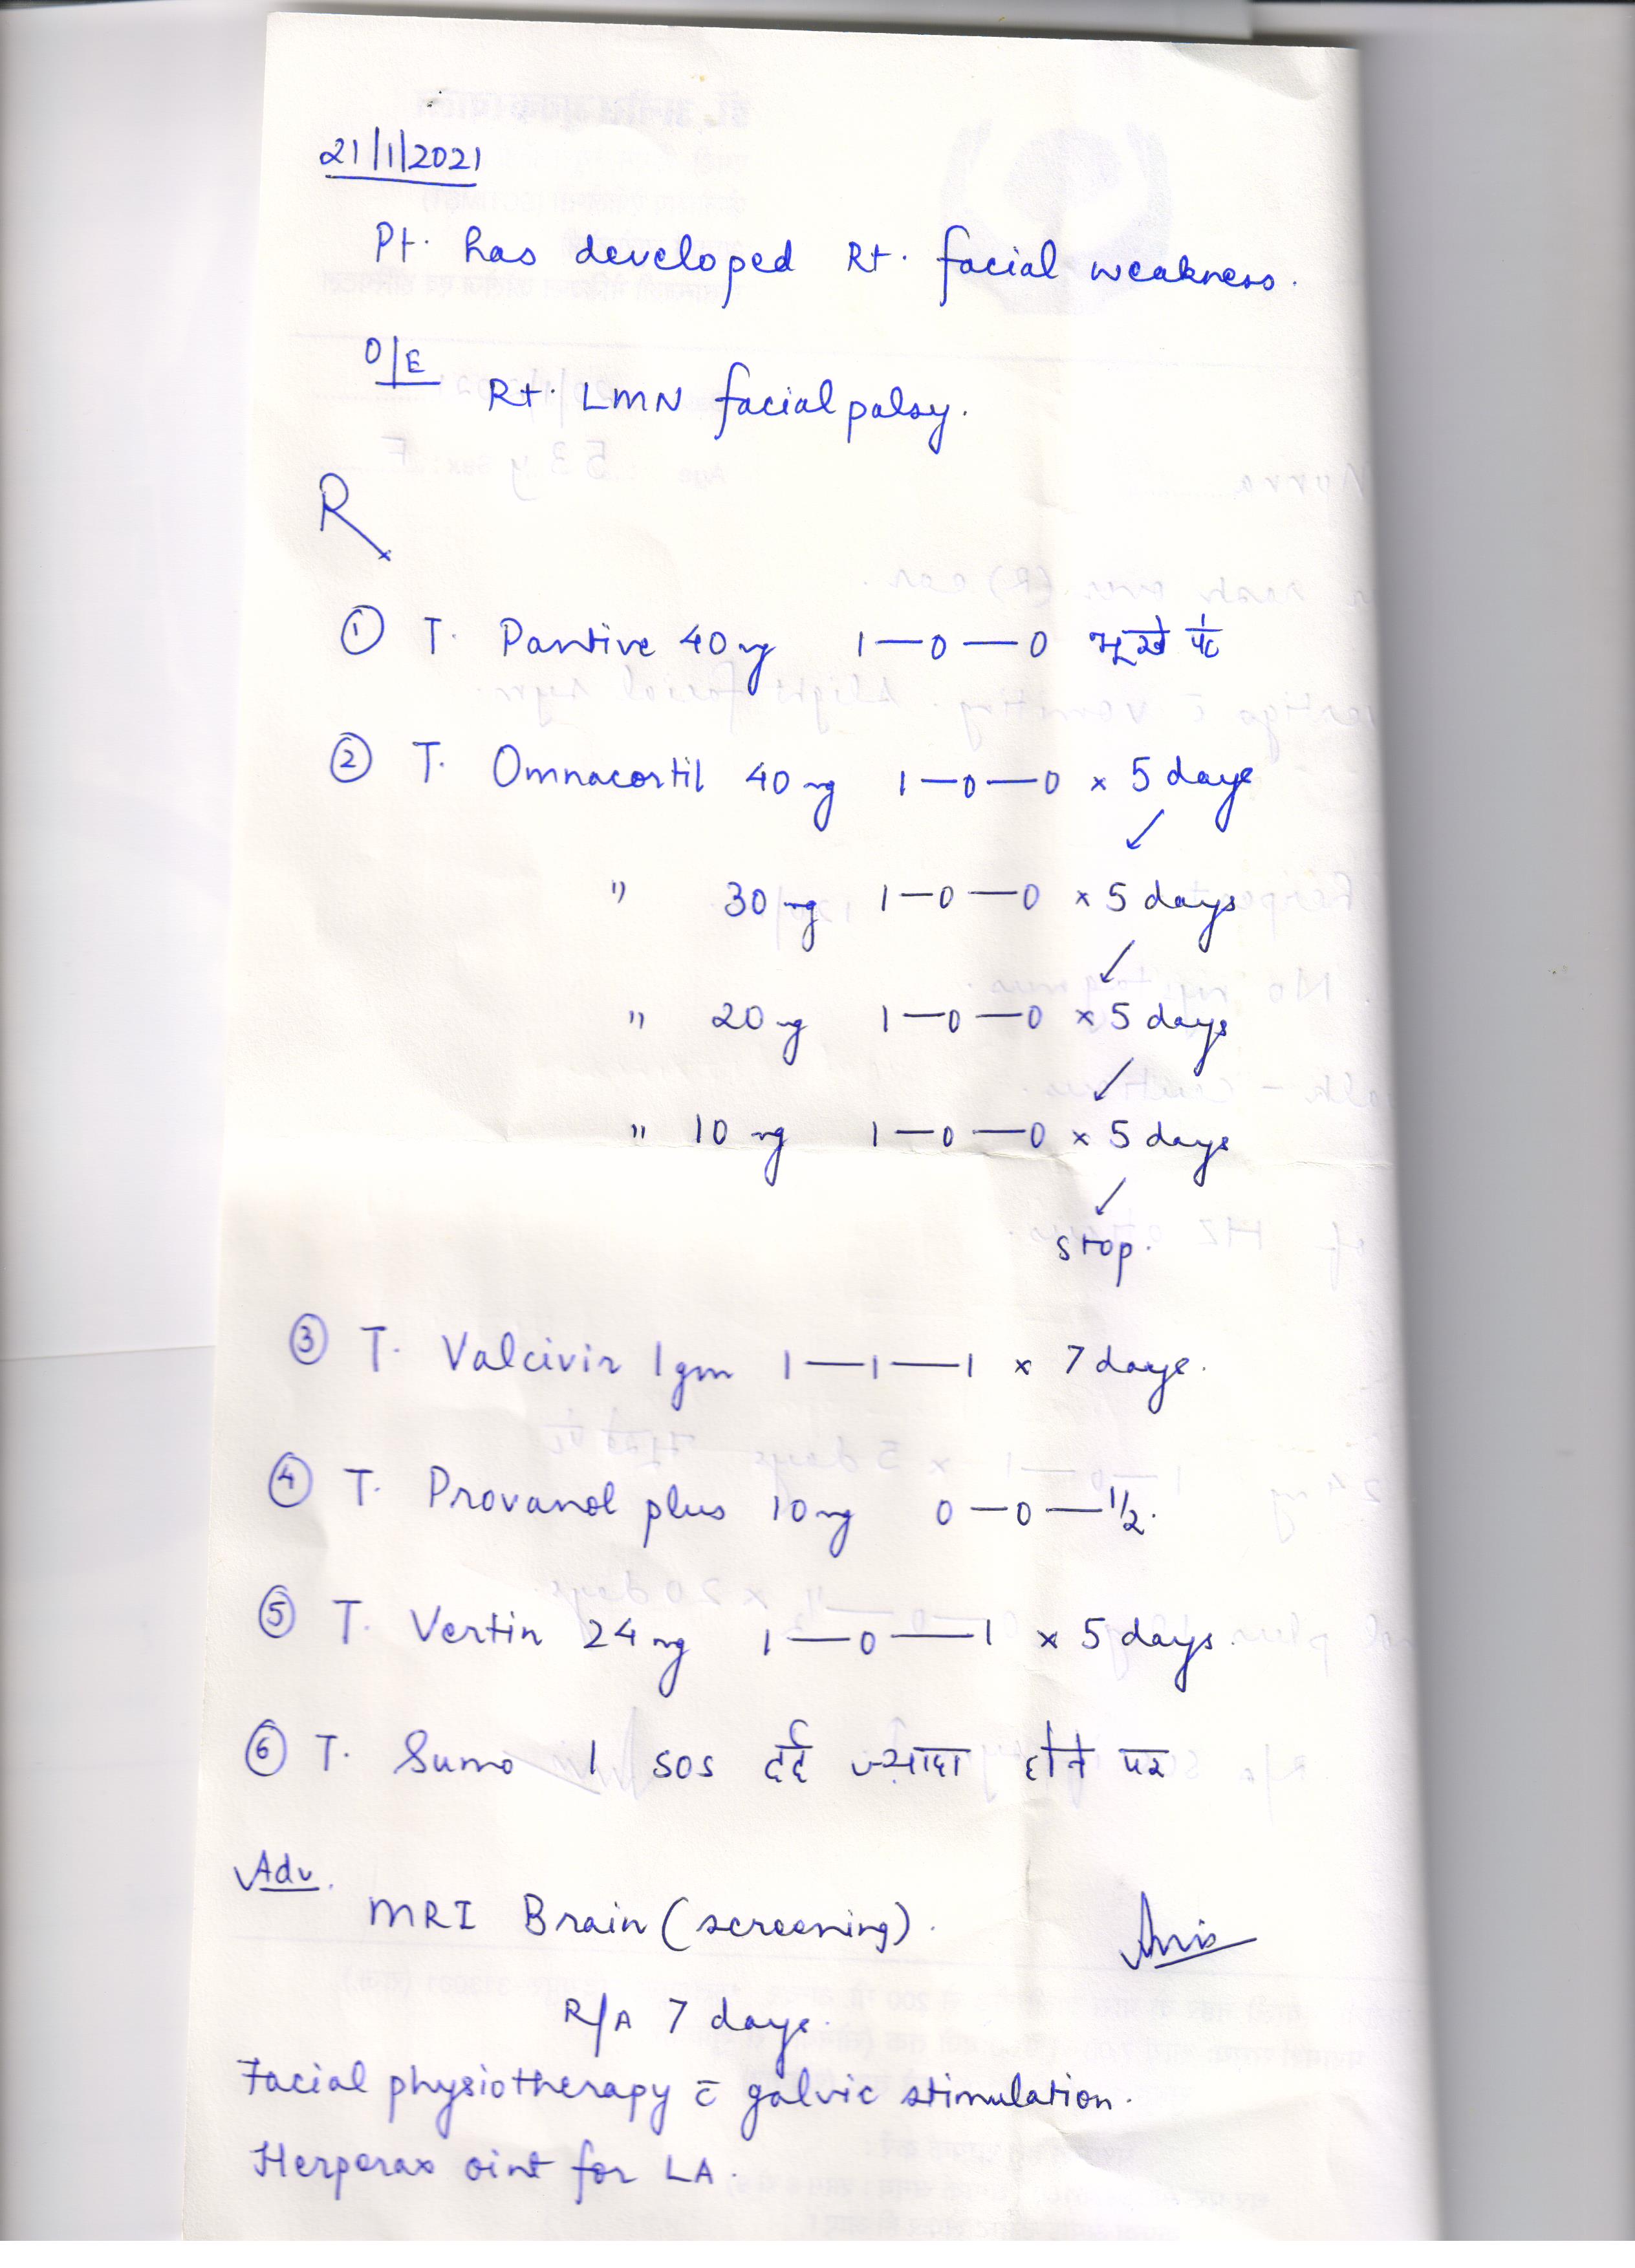 21/1/2021
Pt. has developed Rt. facial weakness.
O/E
Rt. LMN facial palsy.
Rx
① T. Pantive 40mg 1—0—0 भूखे पेट
② T. Omnacortil 40mg 1—0—0 x 5 days
↙
" 30mg 1—0—0 x 5 days
↙
" 20mg 1—0—0 x 5 days
↙
" 10mg 1—0—0 x 5 days
↙
stop.
③ T. Valcivir 1gm 1—1—1 x 7 days.
④ T. Provanol plus 10mg 0—0—1/2.
⑤ T. Vertin 24mg 1—0—1 x 5 days.
⑥ T. Sumo 1 sos दर्द ज्यादा होने पर
Adv.
MRI Brain (screening).
R/A 7 days.
Facial physiotherapy c̄ galvic stimulation.
Herperax oint for LA.